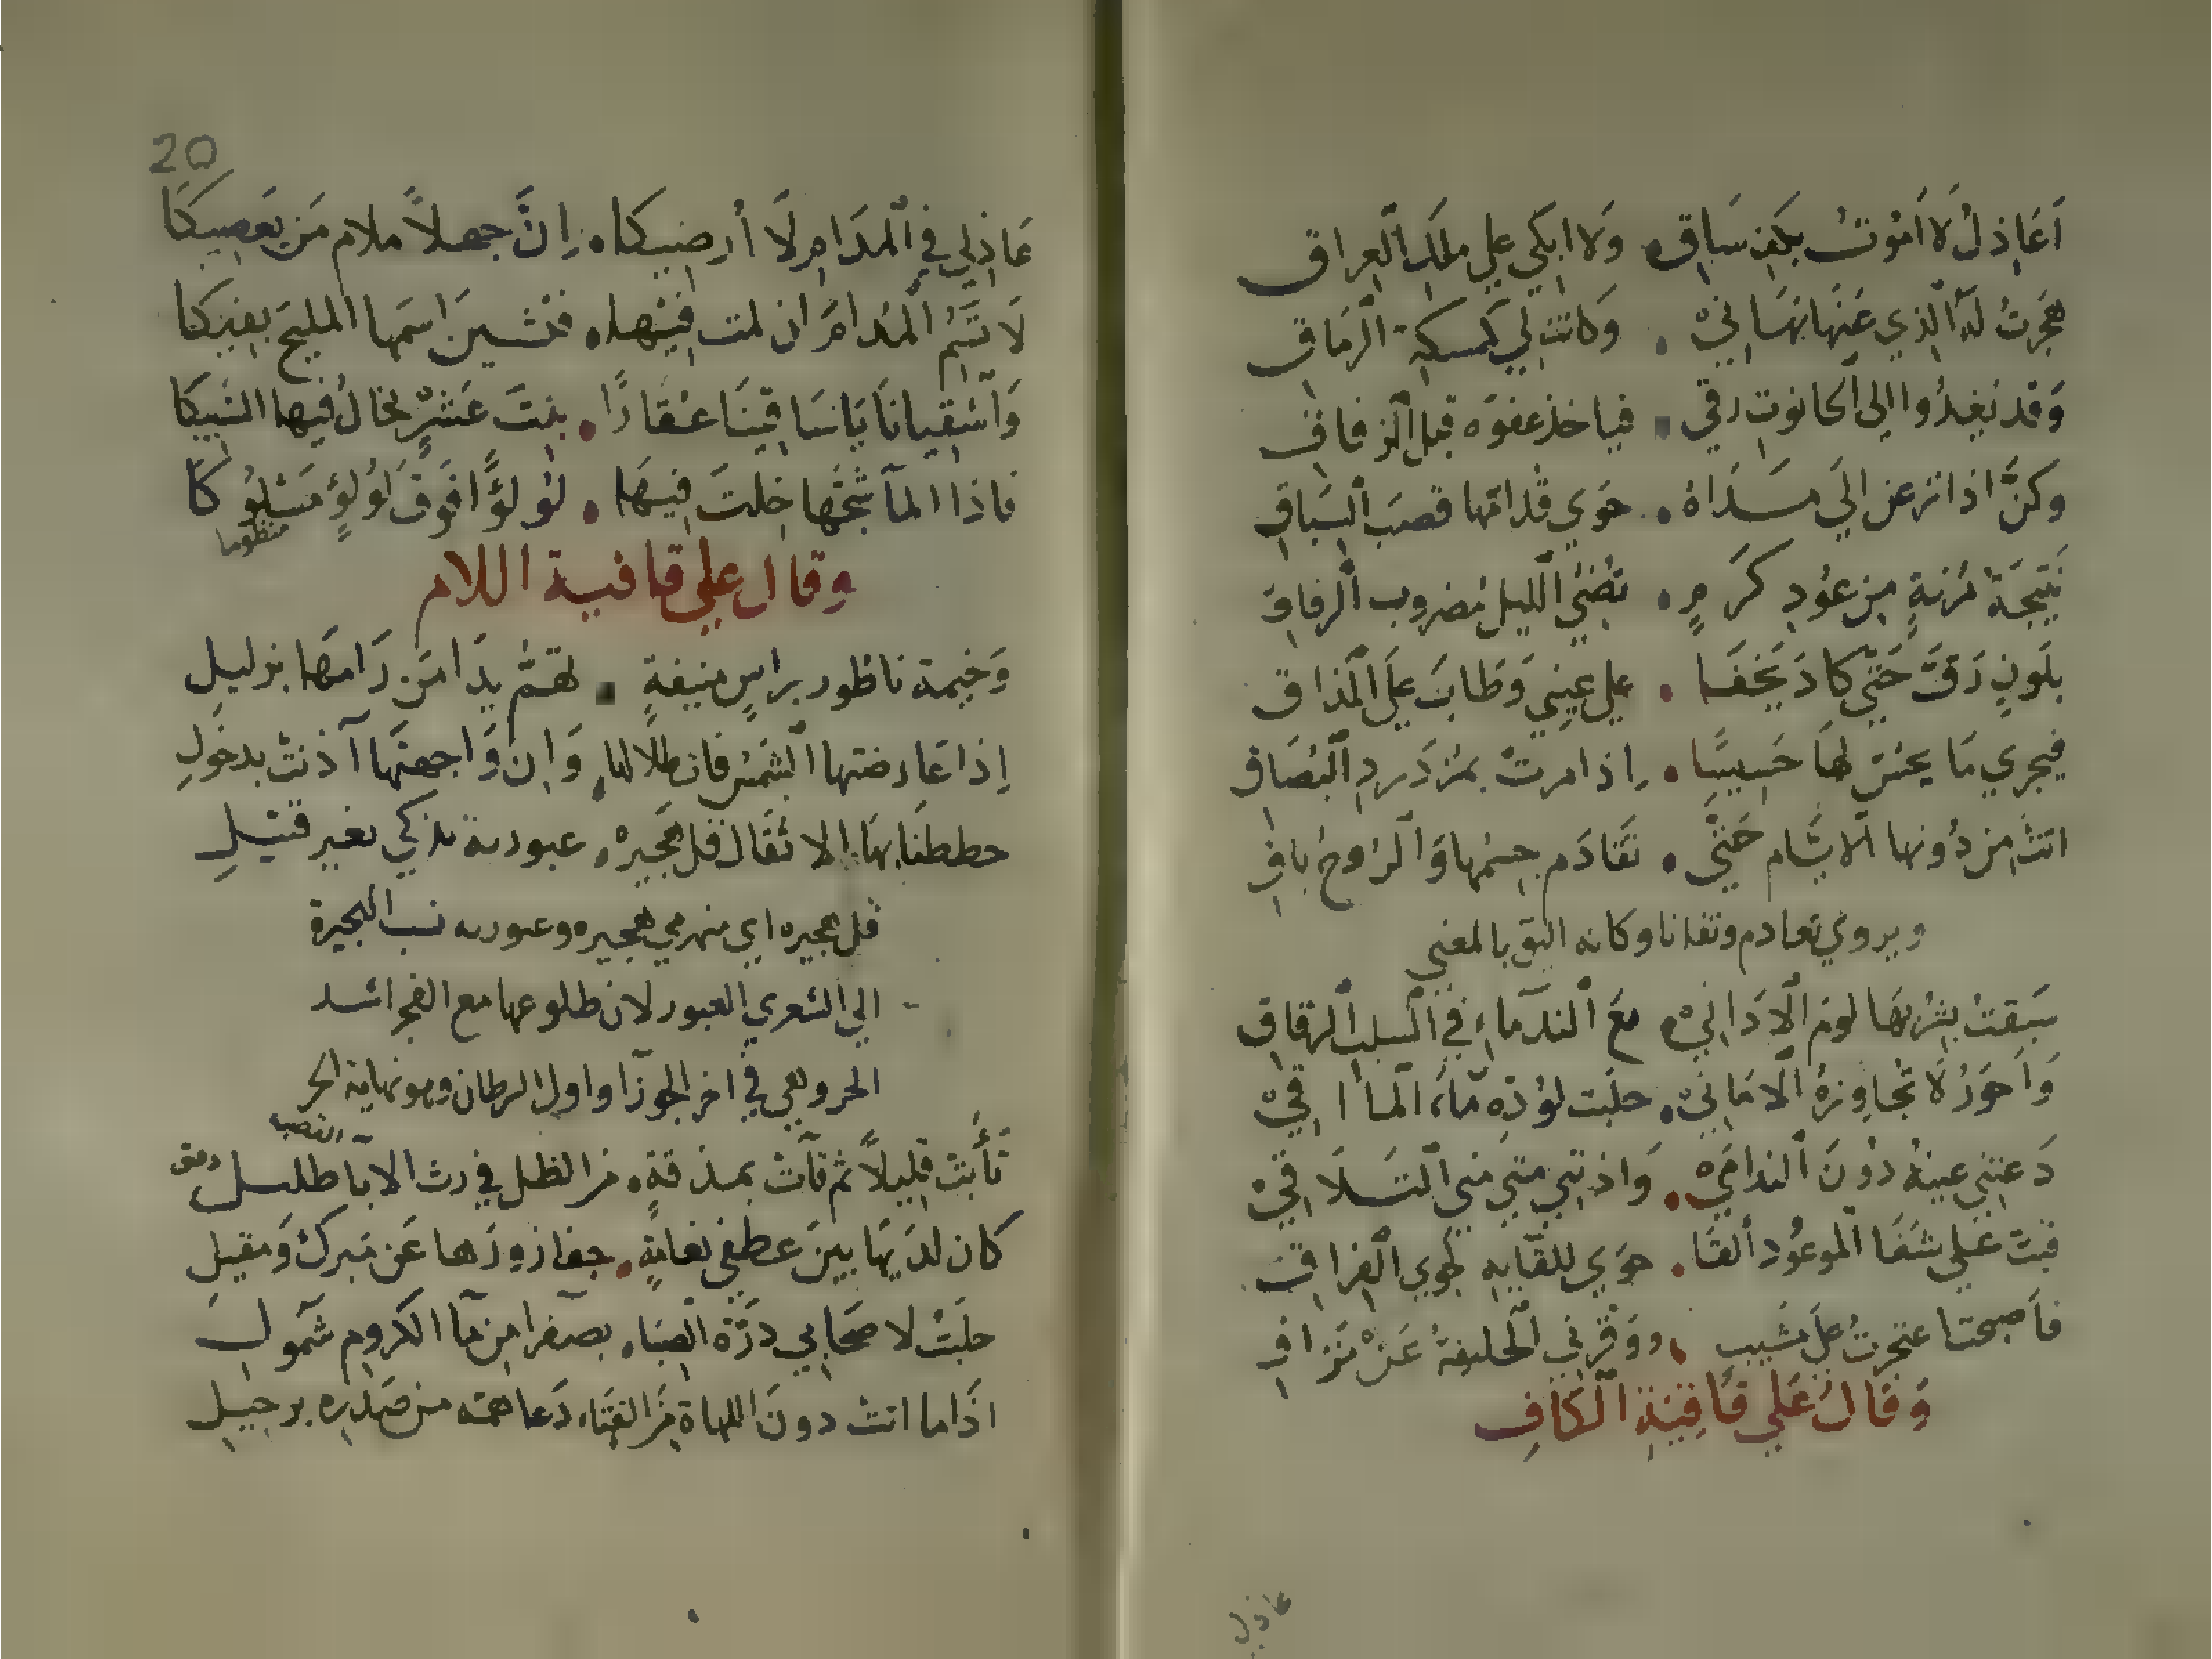 اَعَاذِلُ لَا اَمُوتُ بِكَفِّ سَاقِ وَلَا ابكي علي ملك العِراق
هَجَرتُ لَهُ الَّذِي عَنْهَا نَهَانِيْ . وَكَانَتْ لِي كمسكة الرماق
وَقَد نَغْدُوا الى الحانوت زقي . فياخذ عفوه قبل الزقاق
وكنَّ اذا نزعن الَي مَدَاهُ . حَوَي قدامها قصبَ السِّباق
نَتِيجَةُ مُزْنَةٍ مِن عُودِ كَرمٍ . تُضئُ الليل مضروب الرواق
بلَونٍ رَقَّ حَتَّي كادَ يَخفَا . علي عيني وَطَابَ عَلَى المذاق
فيجري مَا يحسّ لهَا حَسِيسًا . اِذا مرتْ بمُزْدَردِ البُصَاق
اتتْ من دُونها الايَّام حَتَّي . تَقَادَم جِسمُها وَالرُوحُ باق
ويروي تعادم وتفانا وكانه اليق بالمعني
سَبَقتُ بشُربهَا لومَ الادَانِيْ . معَ الندمَاءِ في السلب الرقاق
وَاَحْوَرُ لَا تُجاوِزهُ الامَانِيْ . حلبت لوُدِّهِ مَاءَ المااقيْ
دَعتني عينهُ دُونَ الندامَيْ . وَاذنتني متي مني التَلاقيْ
فبتّ عَلي شَفَا الموعُود اَلقَا . هوَي للقايه كهوي الفِراق
فاَصبحتا عتجرتُ علَي مَشيب . ووَقرني الخليفةُ عَنْ نزَاق
وَقَالَ عَلي قَافِيَةِ الكَافِ
عاذلي
20
عَاذِلي فِي المدَامِ لَا أُرضيكا . اِنَّ جهلاً ملام مَن يَعصيكَا
لَا تَسُم المُدامَ ان لمت فيْها . فتشينَ اسمَها المليحَ بفيكا
وَاسْقِيانَا يَا سَاقِيَنَا عُقَارًا . بِنتَ عَشْرٍ تخالُ فيها السَّبيكا
فاذا الماَ شجَّها خلتَ فِيهَا . لؤلؤًا فَوقَ لؤلؤٍ مَسْلوُكا
منظوما
وقال علي قافية اللام
وَخيمة ناظور براسِ منيفةٍ . تهمّ يدَا مَن رَامهَا بزليلِ
اِذا عَارضتها الشَمسُ فات ظلالها . وَاِن وَاجهتهَا آذنتْ بدخولِ
حططنَا بهَا الاثقَال فل هَجيرة . عبورية تذكي بغير فتيلِ
فل هجيره اي منهزمي هجيره وعبوريه نسب الهجيرة
الي الشعري العبور لان طلوعها مع الفجر اشد
الحر وهي في اخر الجوزا واول السرطان وهو نهاية الحر
القصب
تَأَبتْ قليلاً ثم فآت بمذقةٍ . من الظل في رث الابا طلـسل
كان لدَيهَا بينَ عطفي نعامةٍ . جفا زورُها عَن مَبركٍ وَمقيلِ
حلَبتْ لاصحَابي درَّة الصبا . بصفرا من ماَ الكروم شمول
اذَا ما اتتْ دونَ اللهاة مِن الفتَاء دَعا همه من صَدرِه برحيلِ